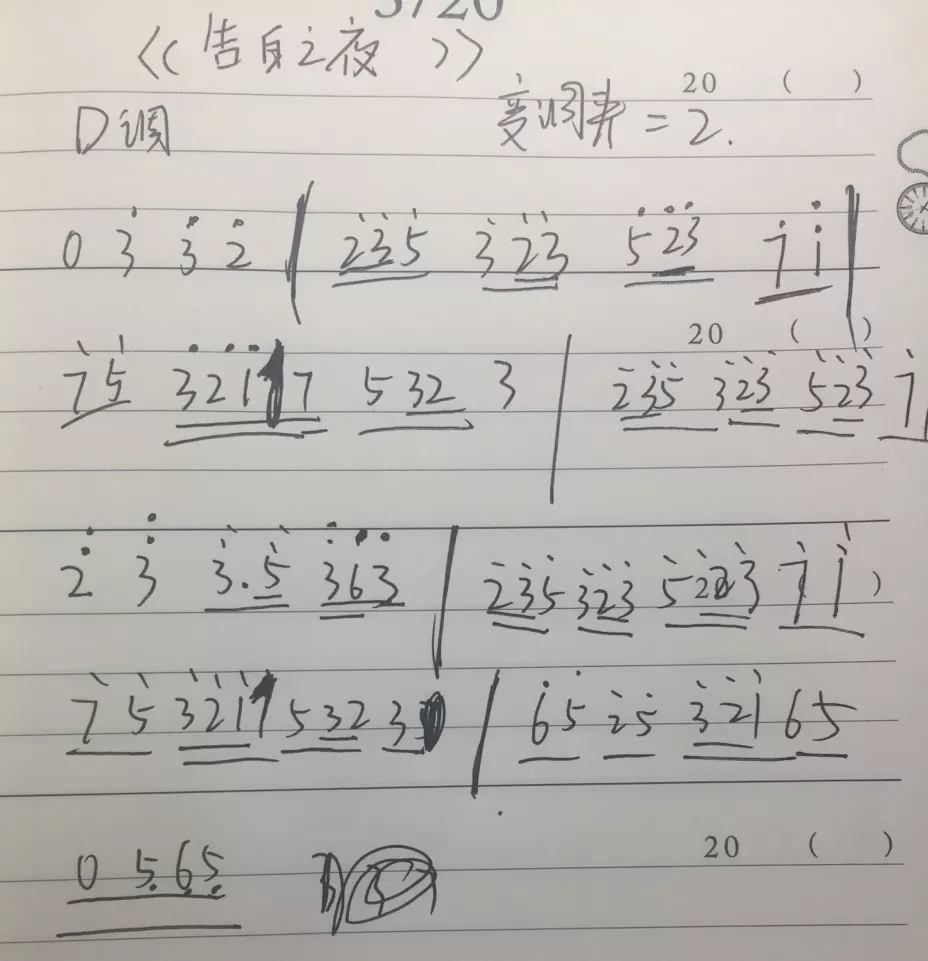 《告白之夜》
20 ( )
D调 变调夹=2.
0 3̇ 3̇ 2̇ | 2̇3̇5̇ 3̇2̇3̇ 5̇2̇3̇ 7̇1̇ |
20 ( )
7̇5̇ 3̇2̇1̇7 532 3 | 2̇3̇5̇ 3̇2̇3̇ 5̇2̇3̇ 7̇
2̇ 3̇ 3̇.5̇ 3̇6̇3̇ | 2̇3̇5̇ 3̇2̇3̇ 5̇2̇3̇ 7̇1̇ )
7̇5̇ 3̇2̇1̇ 532 3 | 6̇5̇ 2̇5̇ 3̇2̇1̇65
20 ( )
0 5̣6̣5̣